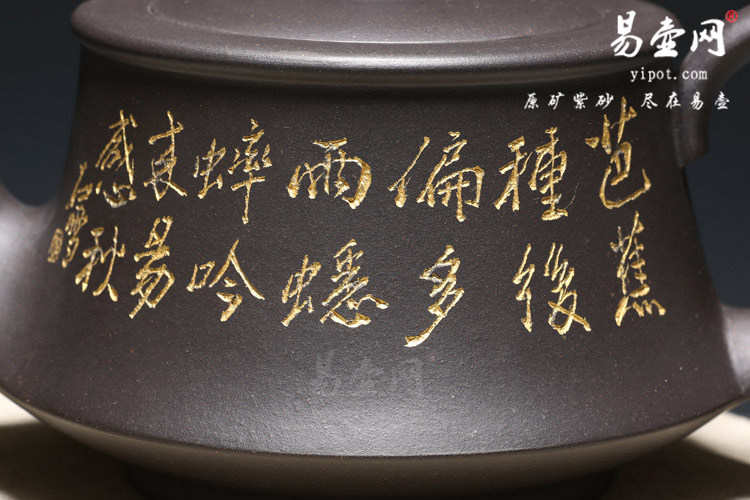 易壶网
yipot.com
原矿紫砂 尽在易壶
芭蕉
種後
偏多
雨蟋
蟀吟
來易
感秋
石
易壶网